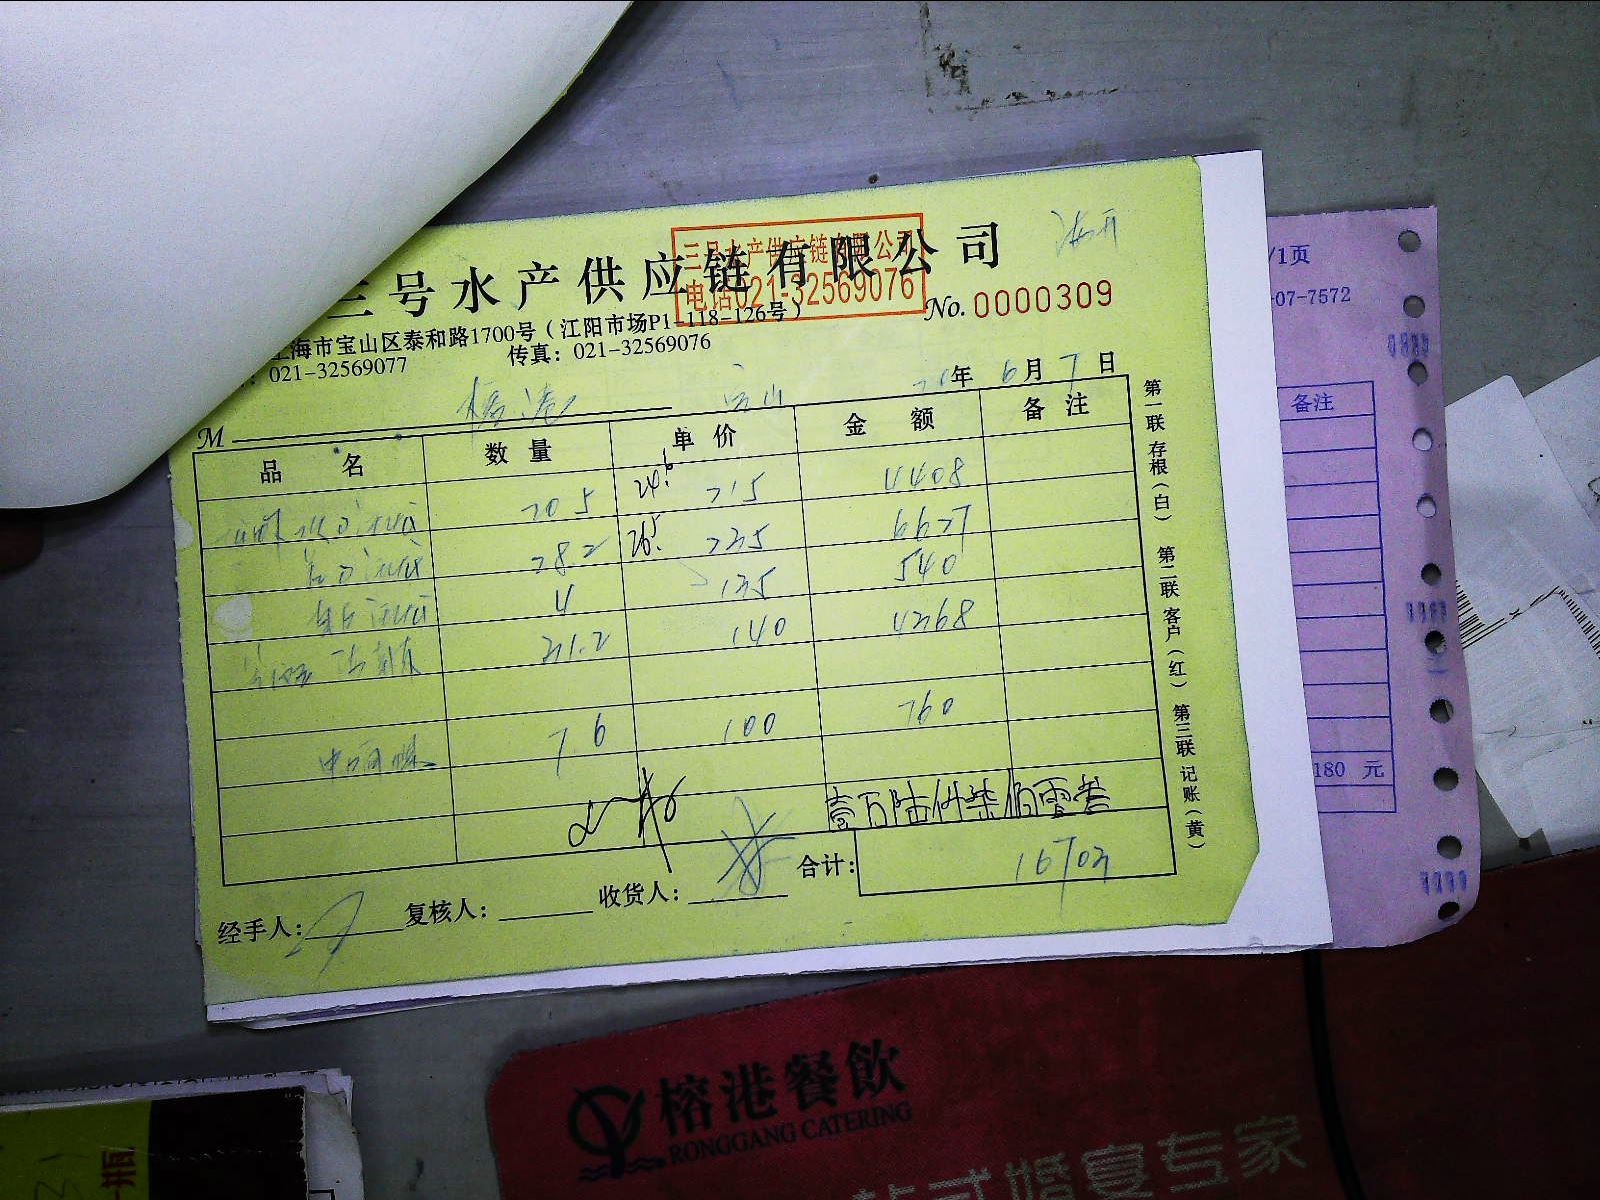 三号水产供应链有限公司
三号水产供应链有限公司
电话021-32569076
No. 0000309
上海市宝山区泰和路1700号（江阳市场P1-118-126号）
：021-32569077 传真：021-32569076
M 榕港 宝山 年 6月 7日
品名 数量 单价 金额 备注
20.5 24.6 215 4408
28.2 26.5 235 6627
4 135 540
31.2 140 4368
7.6 100 760
壹万陆仟柒佰零叁
合计： 16703
经手人： 复核人： 收货人：
第一联 存根（白） 第二联 客户（红） 第三联 记账（黄）
/1页
-07-7572
备注
180 元
榕港餐飲
RONGGANG CATERING
式婚宴专家